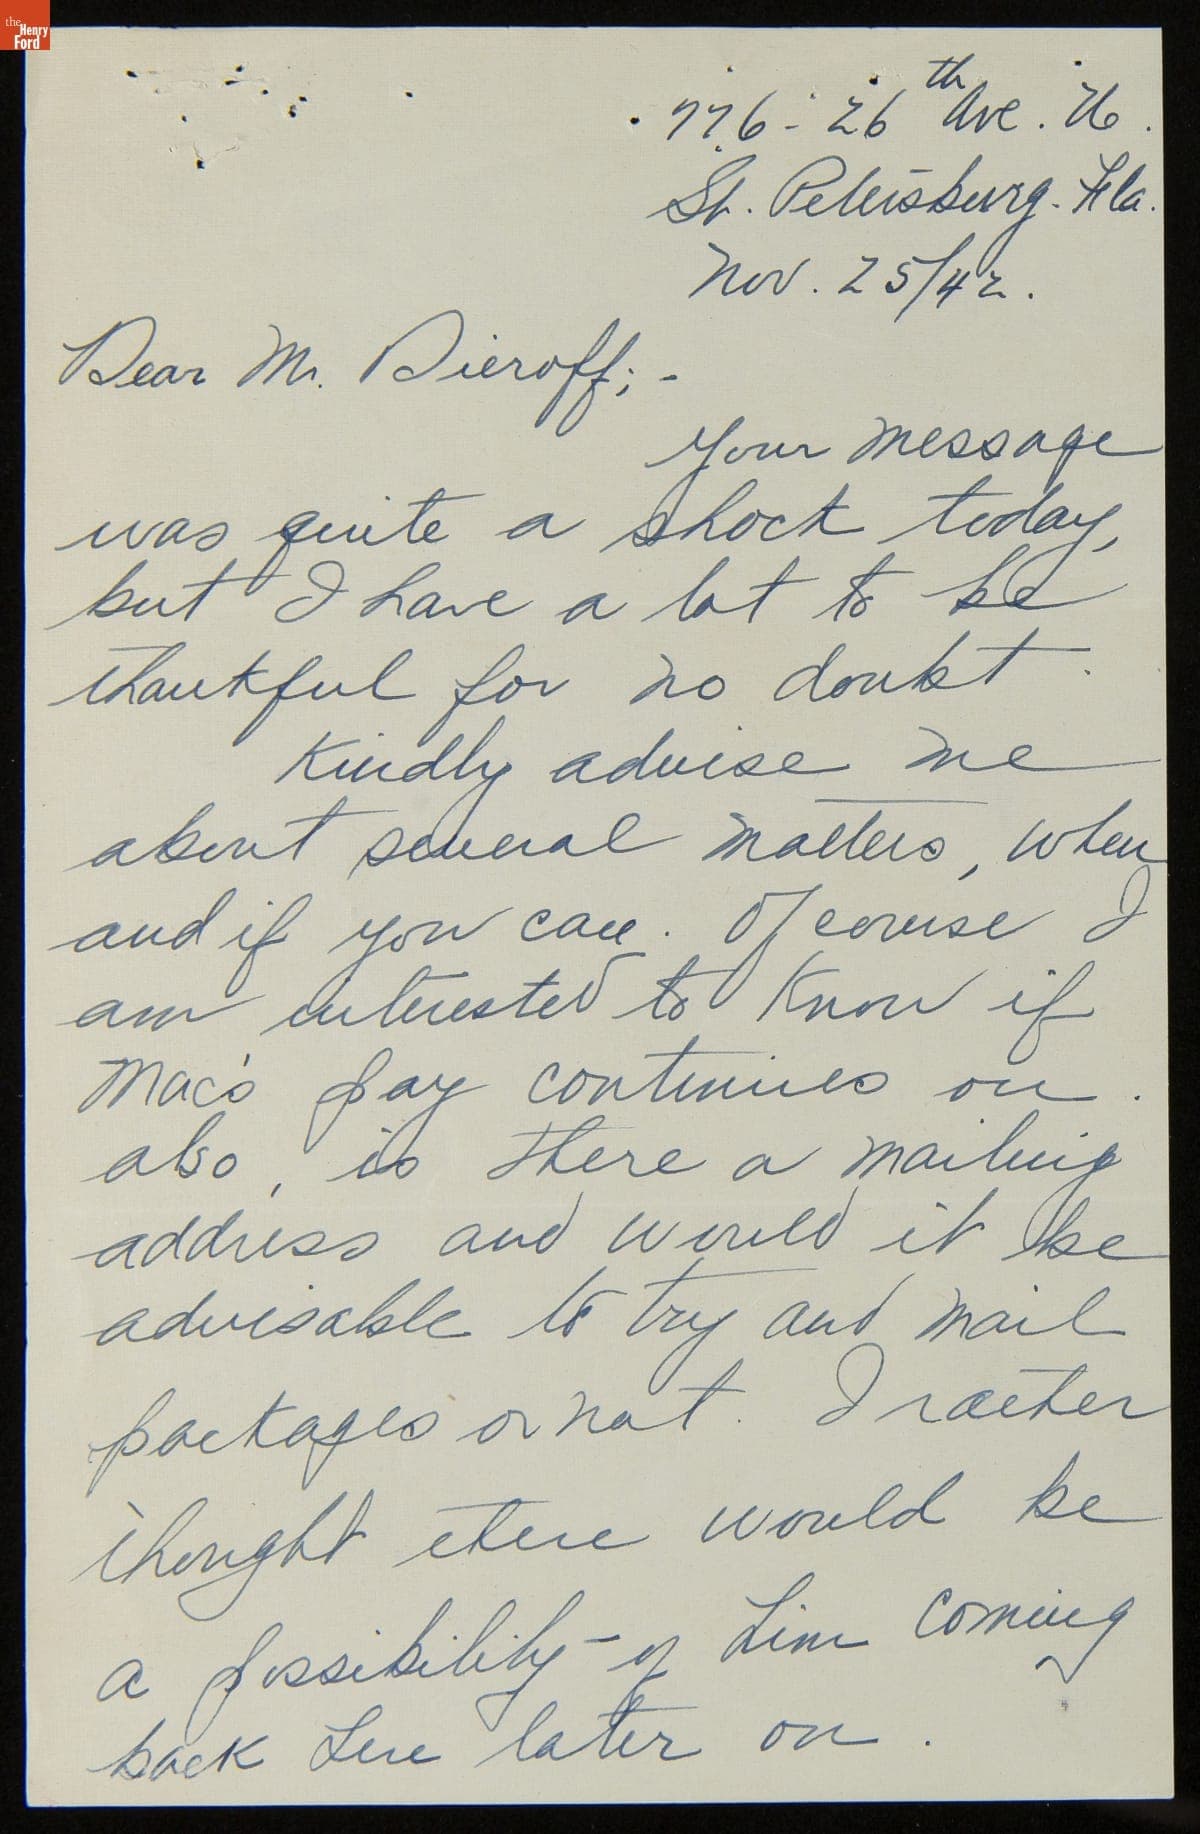 the Henry Ford
776 - 26th Ave. No.
St. Petersburg. Fla.
Nov. 25/42.
Dear Mr. Dieroff; -
Your message
was quite a shock today,
but I have a lot to be
thankful for no doubt.
Kindly advise me
about several matters, when
and if you can. Of course I
am interested to know if
Mac's pay continues on.
also, is there a mailing
address and would it be
advisable to try and mail
packages or not. I raether
thought there would be
a possibility - of him coming
back here later on.